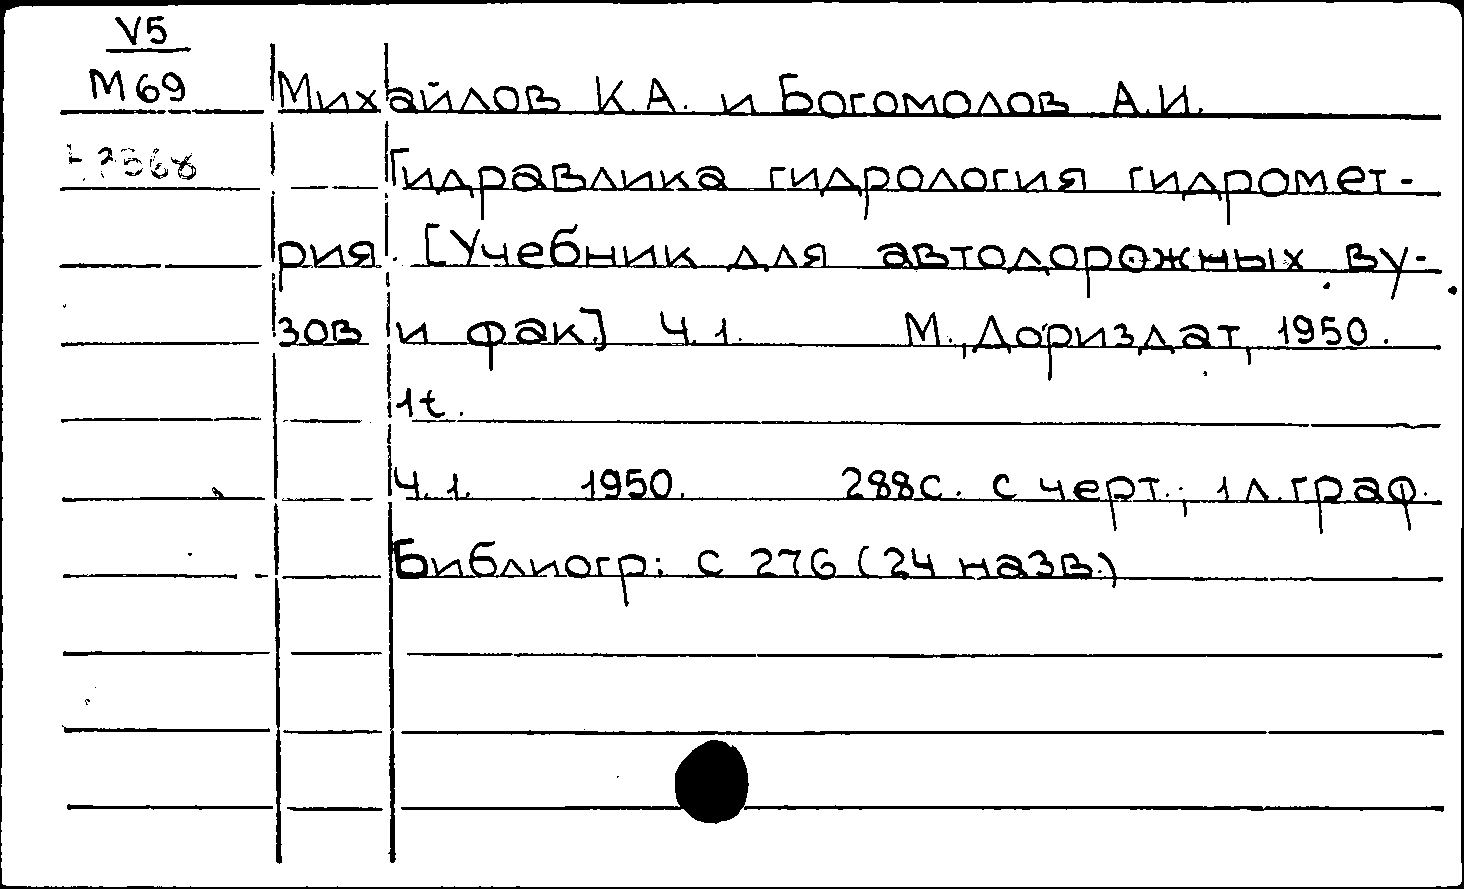 V5
М69
Михайлов К.А. и Богомолов А.И.
Гидравлика гидрология гидромет-
рия. [Учебник для автодорожных ву-
зов и фак.] Ч.1. М., Дориздат, 1950.
1т.
Ч.1. 1950. 288с. с черт.; 1 л. граф.
Библиогр: с 276 (24 назв.)